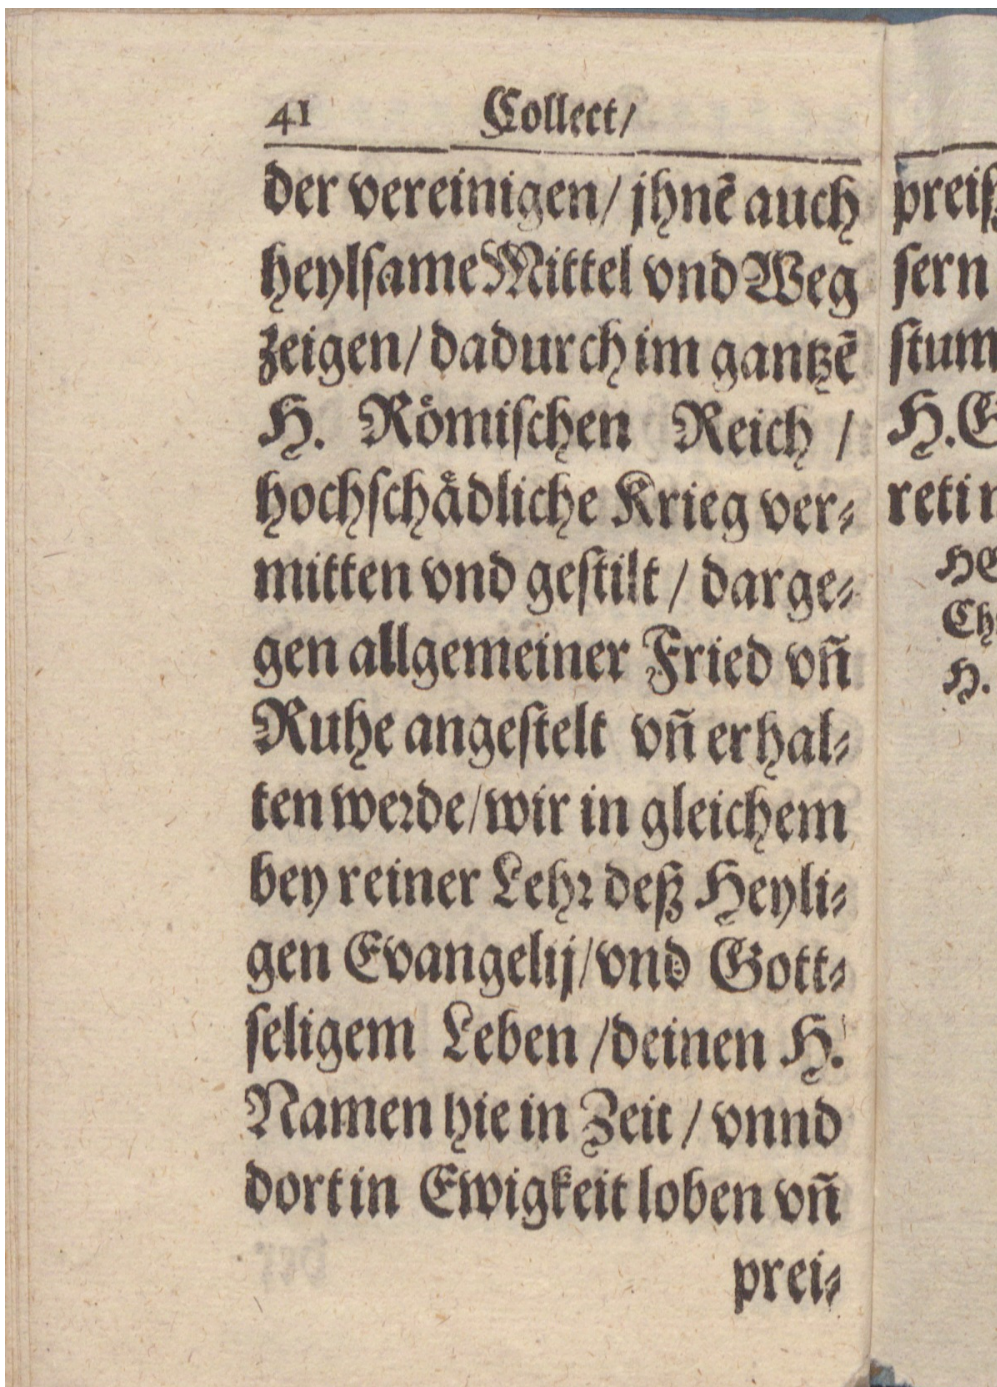 41 Collect/
der vereinigen/ jhnẽ auch
heylſame Mittel vnd Weg
zeigen/ dadurch im gantzẽ
H. Roͤmiſchen Reich /
hochſchaͤdliche Krieg ver⸗
mitten vnd geſtilt / darge⸗
gen allgemeiner Fried vñ
Ruhe angeſtelt vñ erhal⸗
ten weꝛde/ wir in gleichem
bey reiner Lehꝛ deß Heyli⸗
gen Evangelij/ vnd Gott⸗
ſeligem Leben /deinen H.
Namen hie in Zeit / vnnd
dort in Ewigkeit loben vñ
prei⸗
preiß
ſern
ſtum
H. G
reti
HE
Ch
H.